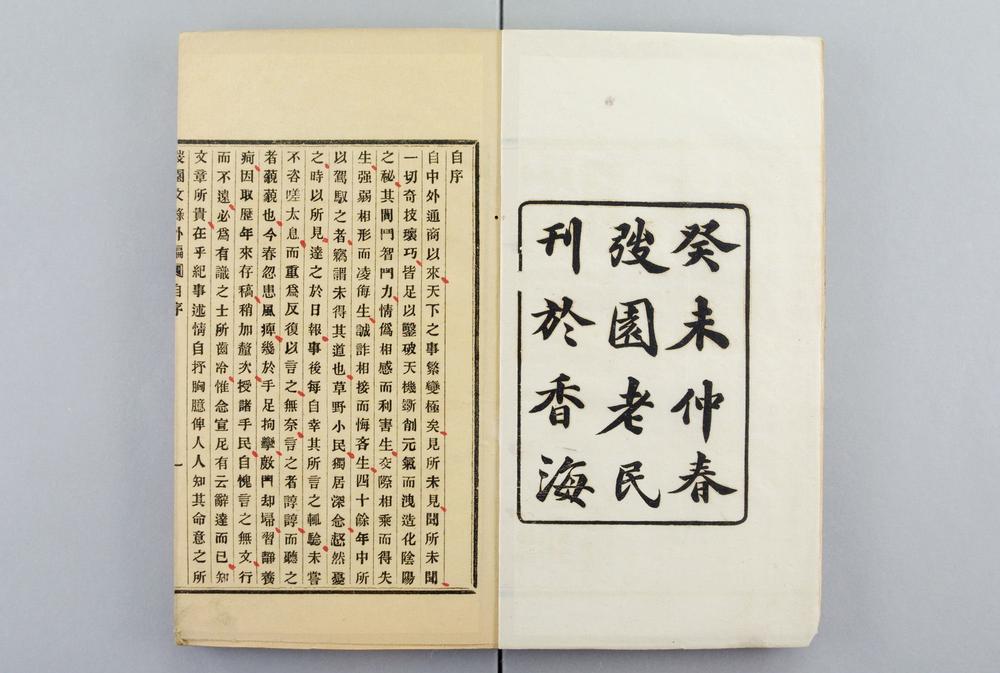 癸未仲春
弢園老民
刊於香海
自序
自中外通商以來天下之事繁變極矣見所未見聞所未聞
一切奇技瓌巧皆足以鑿破天機斲削元氣而洩造化陰陽
之秘其鬬鬬智鬬力情僞相感而利害生交際相乘而得失
生强弱相形而凌侮生誠詐相接而悔吝生四十餘年中所
以駕馭之者竊謂未得其道也草野小民獨居深念怒然憂
之時以所見達之於日報事後每自幸其所言之輒驗未嘗
不咨嗟太息而重爲反復以言之無奈言之者諄諄而聽之
者藐藐也今春忽患風痺幾於手足拘攣敵門却埽習靜養
疴因取歷年來存稿稍加釐次授諸手民自愧言之無文行
而不遠必爲有識之士所齒冷惟念宣尼有云辭達而已知
文章所貴在乎紀事述情自抒胸臆俾人人知其命意之所
弢園文錄外編 自序 一